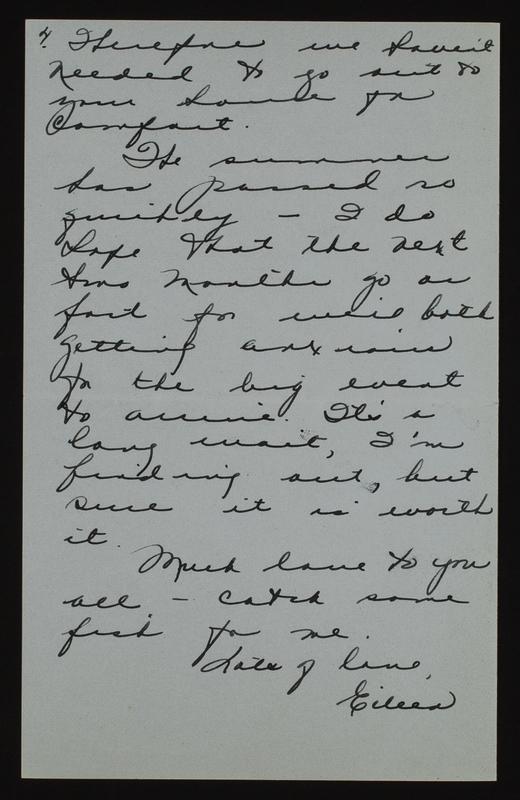 4. Therefore we haven't
needed to go out to
your house for
comfort.
The summer
has passed so
quickly - I do
hope that the next
two months go as
fast for we're both
getting anxious
for the big event
to arrive. It's a
long wait, I'm
finding out, but
sure it is worth
it.
Much love to you
all - catch some
fish for me.
Lots of love,
Eileen